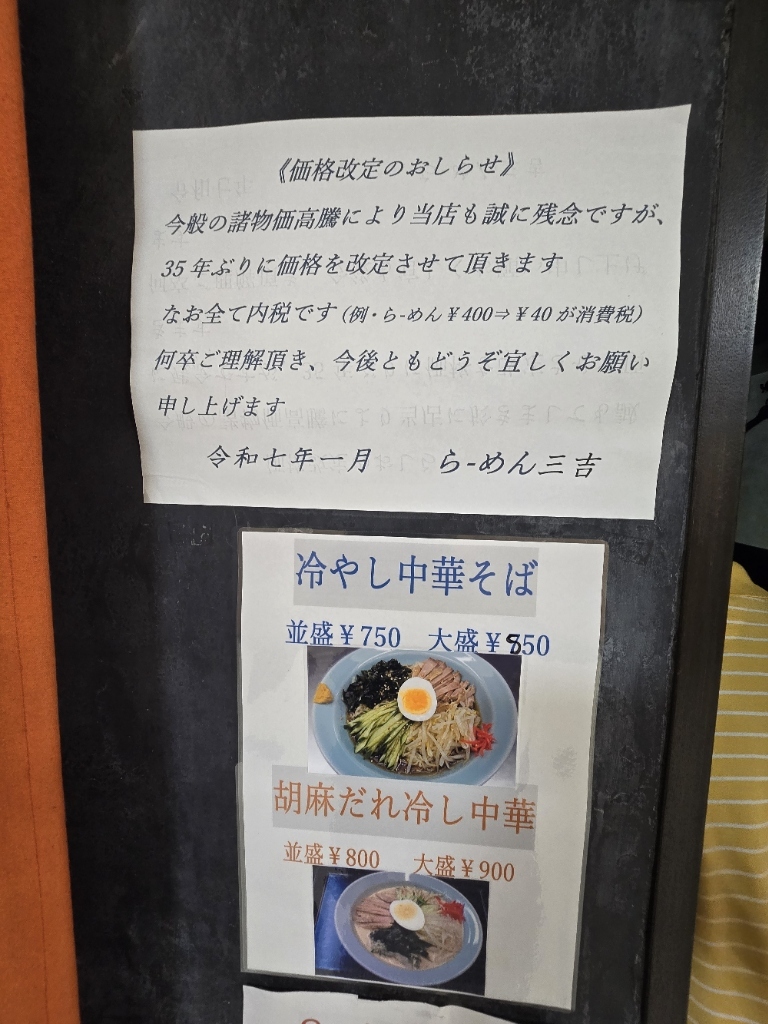 《価格改定のおしらせ》
今般の諸物価高騰により当店も誠に残念ですが、
35年ぶりに価格を改定させて頂きます
なお全て内税です(例・ら-めん￥400⇒￥40が消費税)
何卒ご理解頂き、今後ともどうぞ宜しくお願い
申し上げます
令和七年一月 ら-めん三吉
冷やし中華そば
並盛￥750 大盛￥850
胡麻だれ冷し中華
並盛￥800 大盛￥900